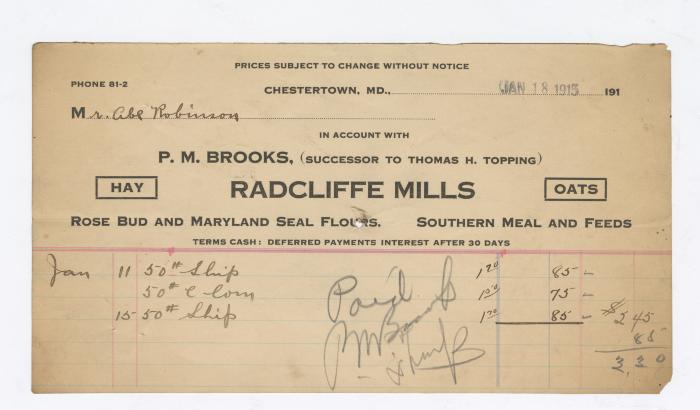 PRICES SUBJECT TO CHANGE WITHOUT NOTICE
PHONE 81-2
CHESTERTOWN, MD., JAN 18 1915 191
Mr. Abe Robinson
IN ACCOUNT WITH
P. M. BROOKS, (SUCCESSOR TO THOMAS H. TOPPING)
HAY RADCLIFFE MILLS OATS
ROSE BUD AND MARYLAND SEAL FLOURS. SOUTHERN MEAL AND FEEDS
TERMS CASH: DEFERRED PAYMENTS INTEREST AFTER 30 DAYS
Jan 11 50# Ship 1 70 85 -
50# C Corn 1 50 75 -
15 50# Ship 1 70 85 - $2 45
85
3,30
Paid
P M Brooks